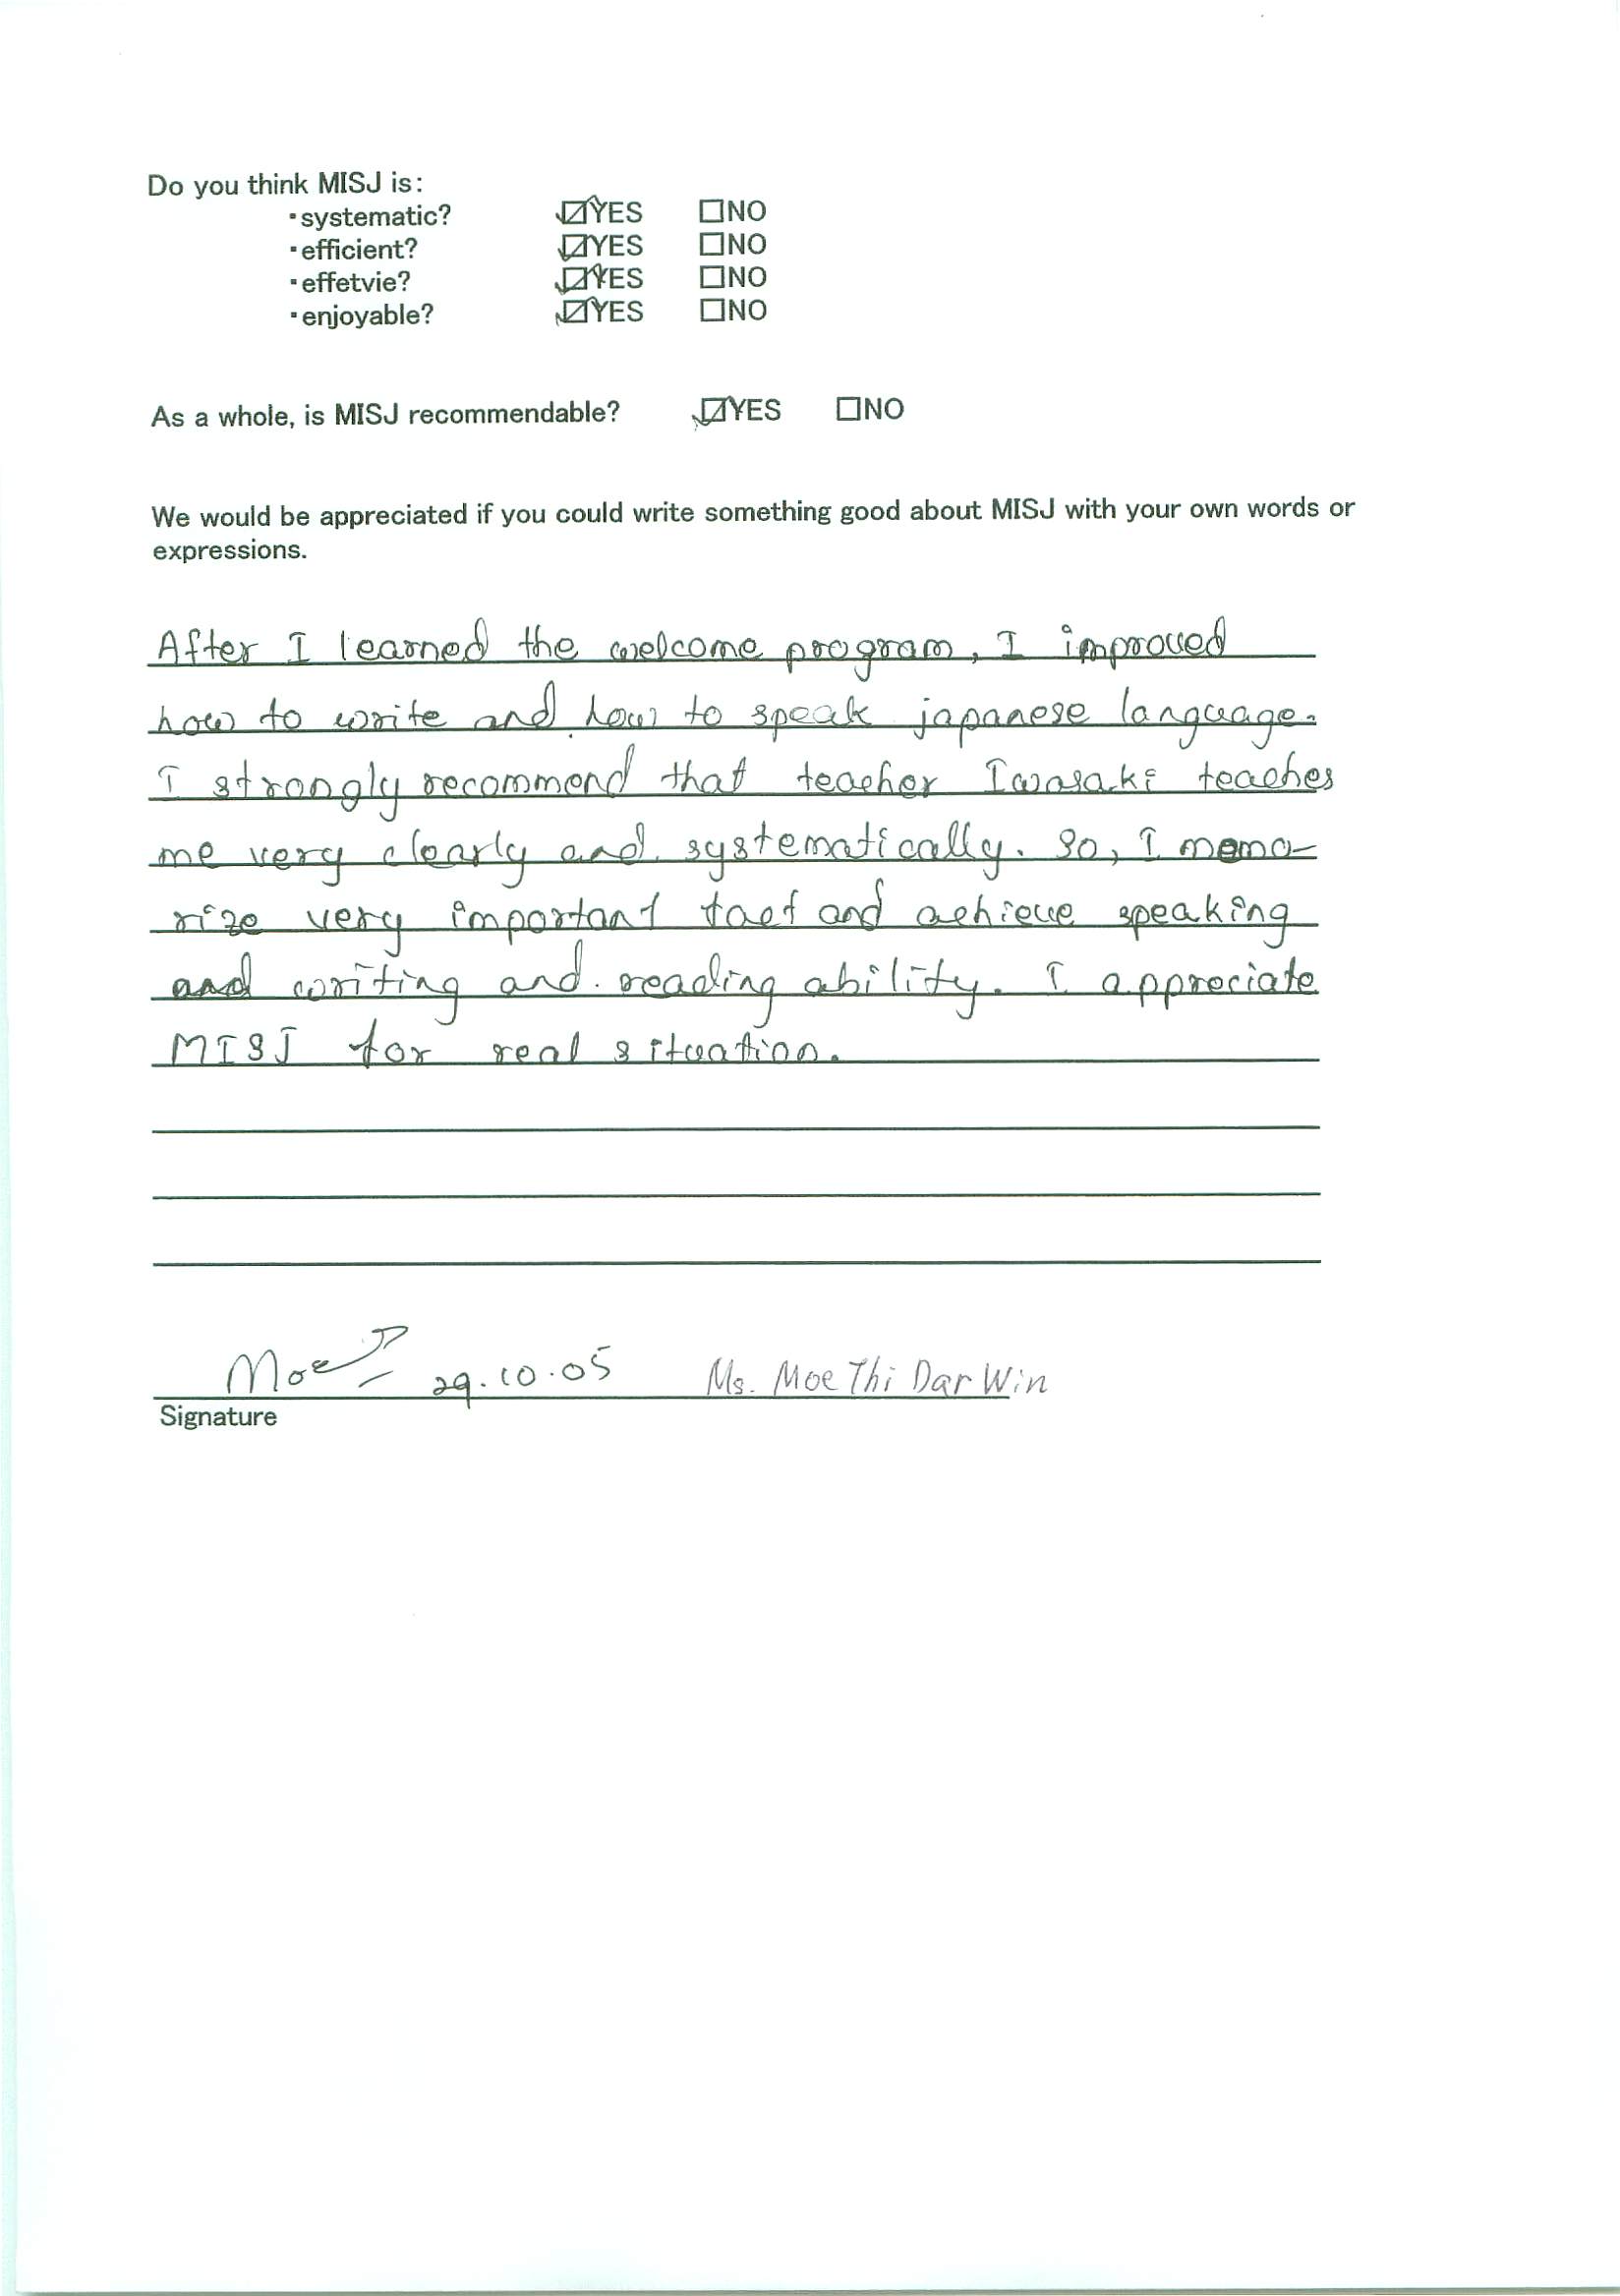 Do you think MISJ is:
・systematic? ☑YES ☐NO
・efficient? ☑YES ☐NO
・effetvie? ☑YES ☐NO
・enjoyable? ☑YES ☐NO
As a whole, is MISJ recommendable? ☑YES ☐NO
We would be appreciated if you could write something good about MISJ with your own words or
expressions.
After I learned the welcome program, I improved
how to write and how to speak japanese language.
I strongly recommend that teacher Iwasaki teaches
me very clearly and systematically. So, I memo-
rize very important fact and achieve speaking
and writing and reading ability. I appreciate
MISJ for real situation.
Moe 29.10.05 Ms. Moe Thi Dar Win
Signature